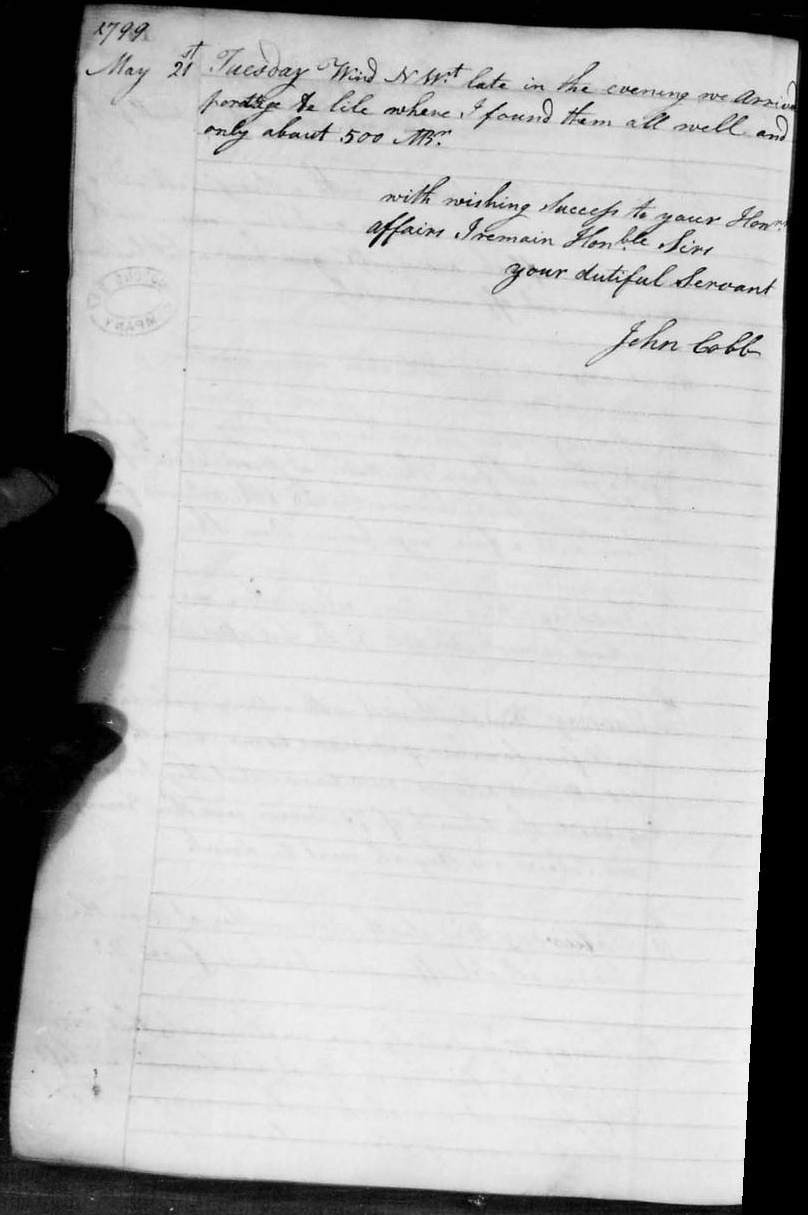 1799
May 21st Tuesday Wind N Wt. late in the evening we Arrived
portage de lile where I found them all well and
only about 500 MBr.
with wishing Success to your Honrs
affairs I remain Honble Sirs
your dutiful Servant
John Cobb